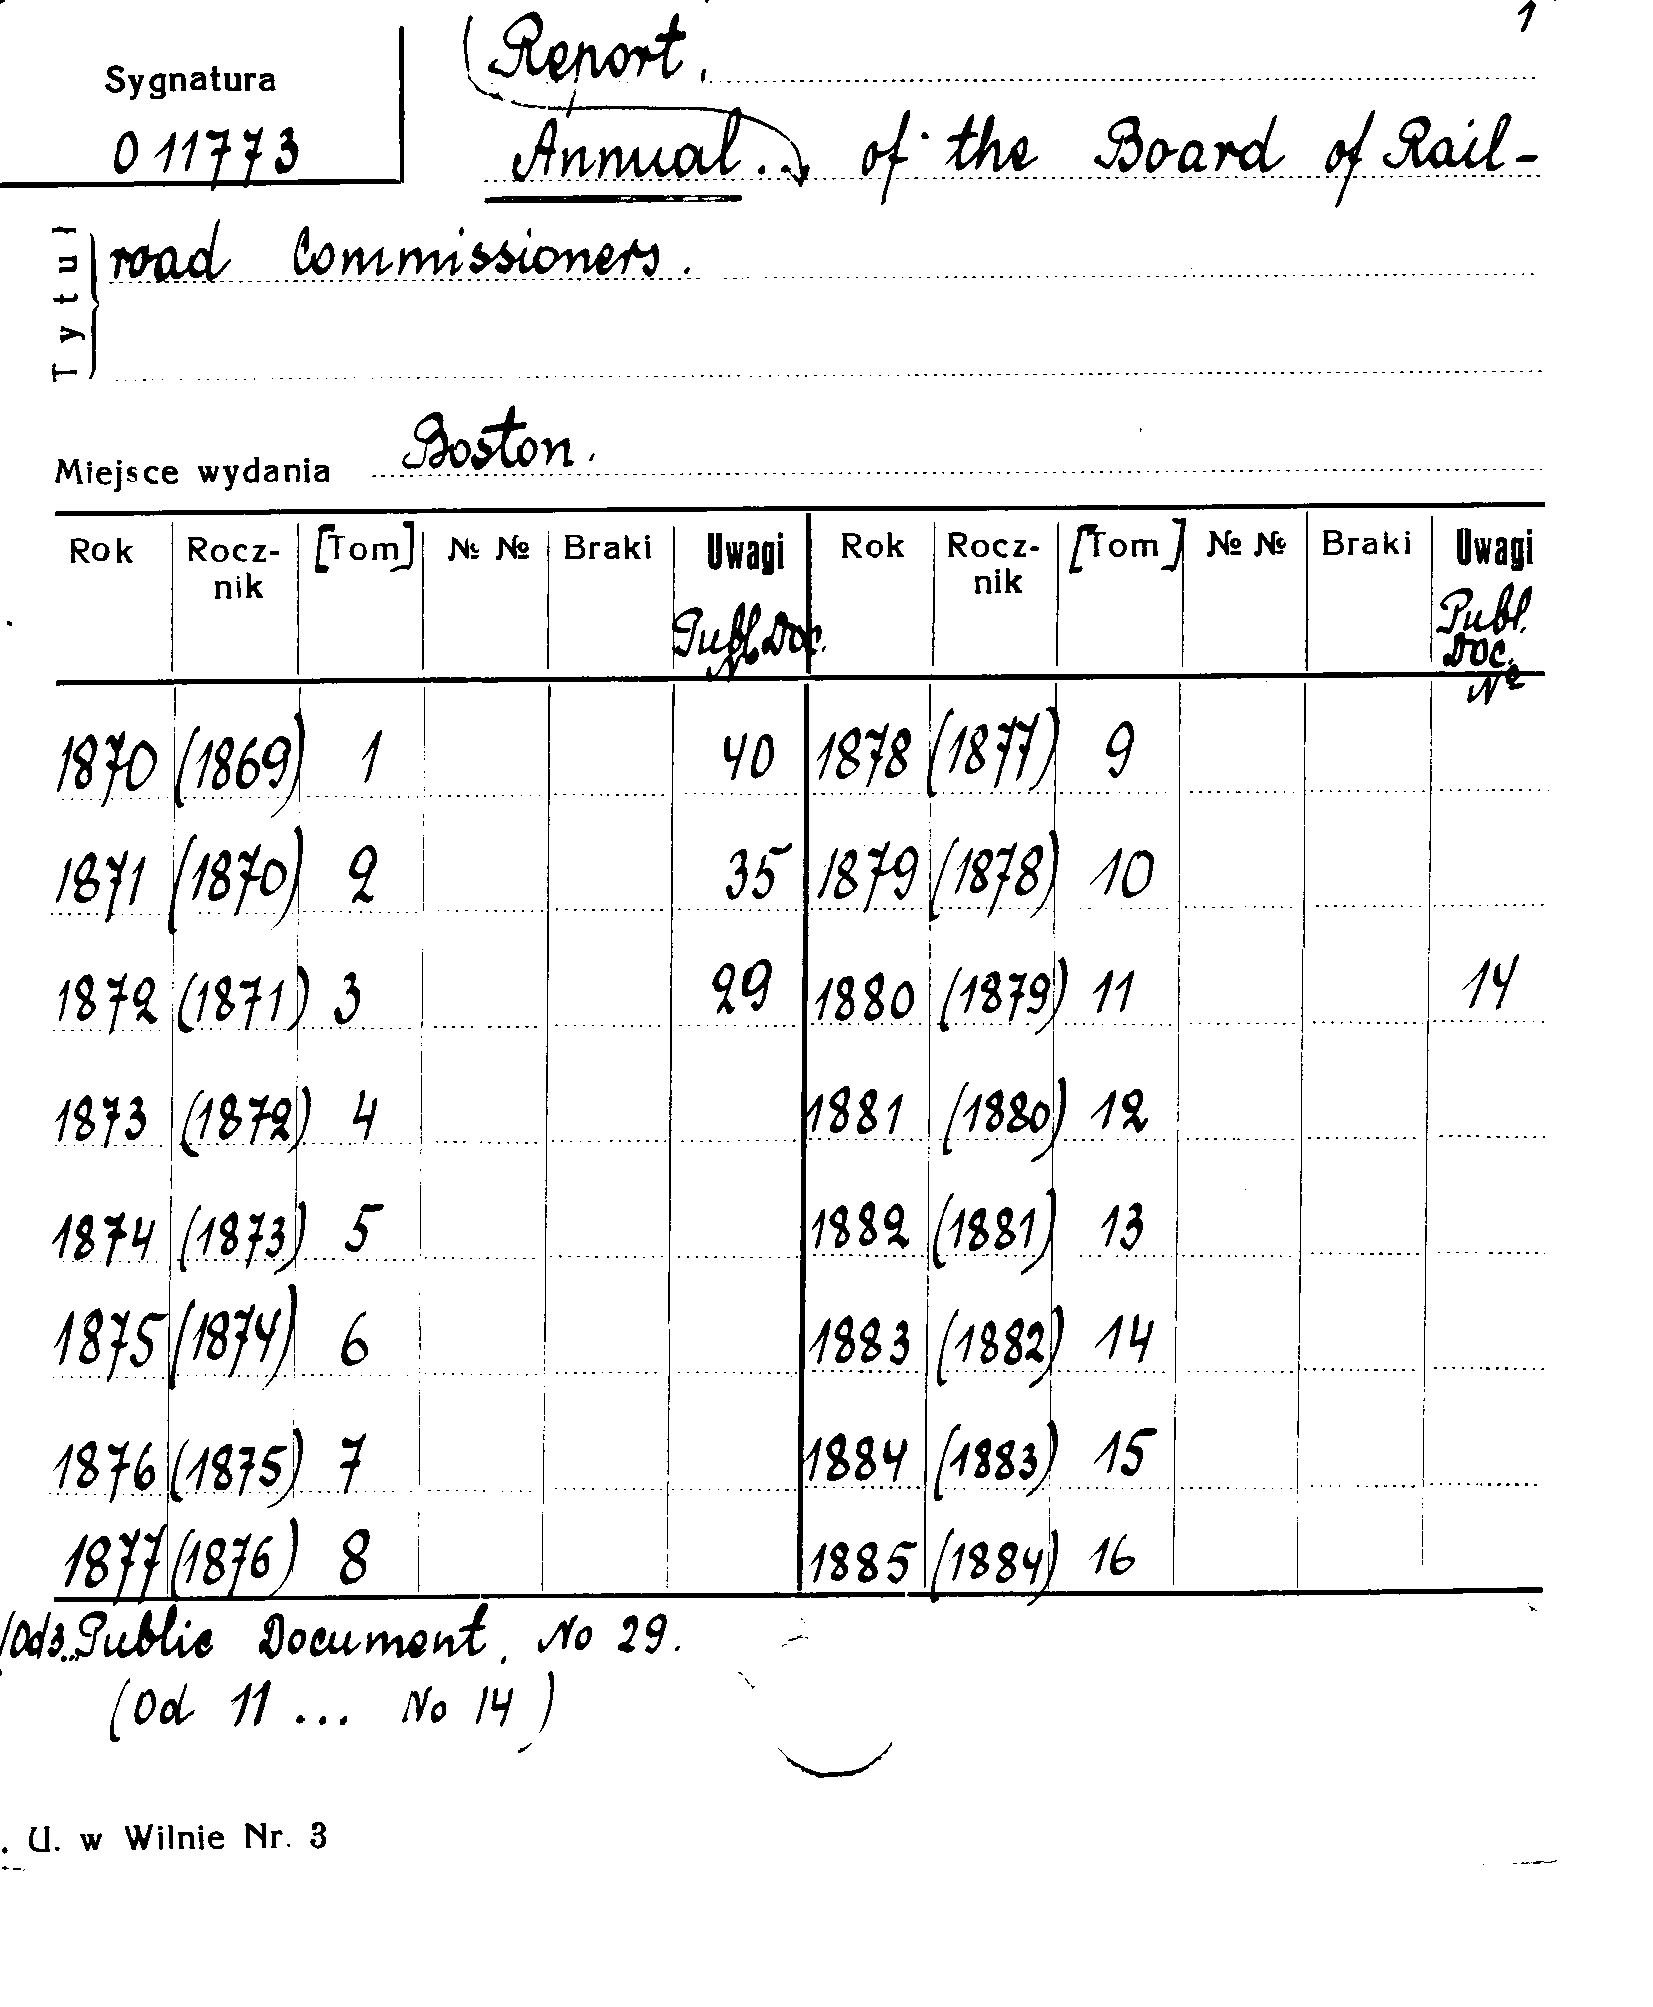 1
Report.
Sygnatura
O 11773
Annual.. of the Board of Rail-
Tytuł
road Commissioners.
Miejsce wydania Boston.
Rok Rocz-nik [Tom] № № Braki Uwagi Publ. Doc. № Rok Rocz-nik [Tom] № № Braki Uwagi Publ. Doc. №
1870 (1869) 1 40 1878 (1877) 9
1871 (1870) 2 35 1879 (1878) 10
1872 (1871) 3 29 1880 (1879) 11 14
1873 (1872) 4 1881 (1880) 12
1874 (1873) 5 1882 (1881) 13
1875 (1874) 6 1883 (1882) 14
1876 (1875) 7 1884 (1883) 15
1877 (1876) 8 1885 (1884) 16
/Od 3.. Public Document. No 29.
(Od 11 ... No 14)
. U. w Wilnie Nr. 3